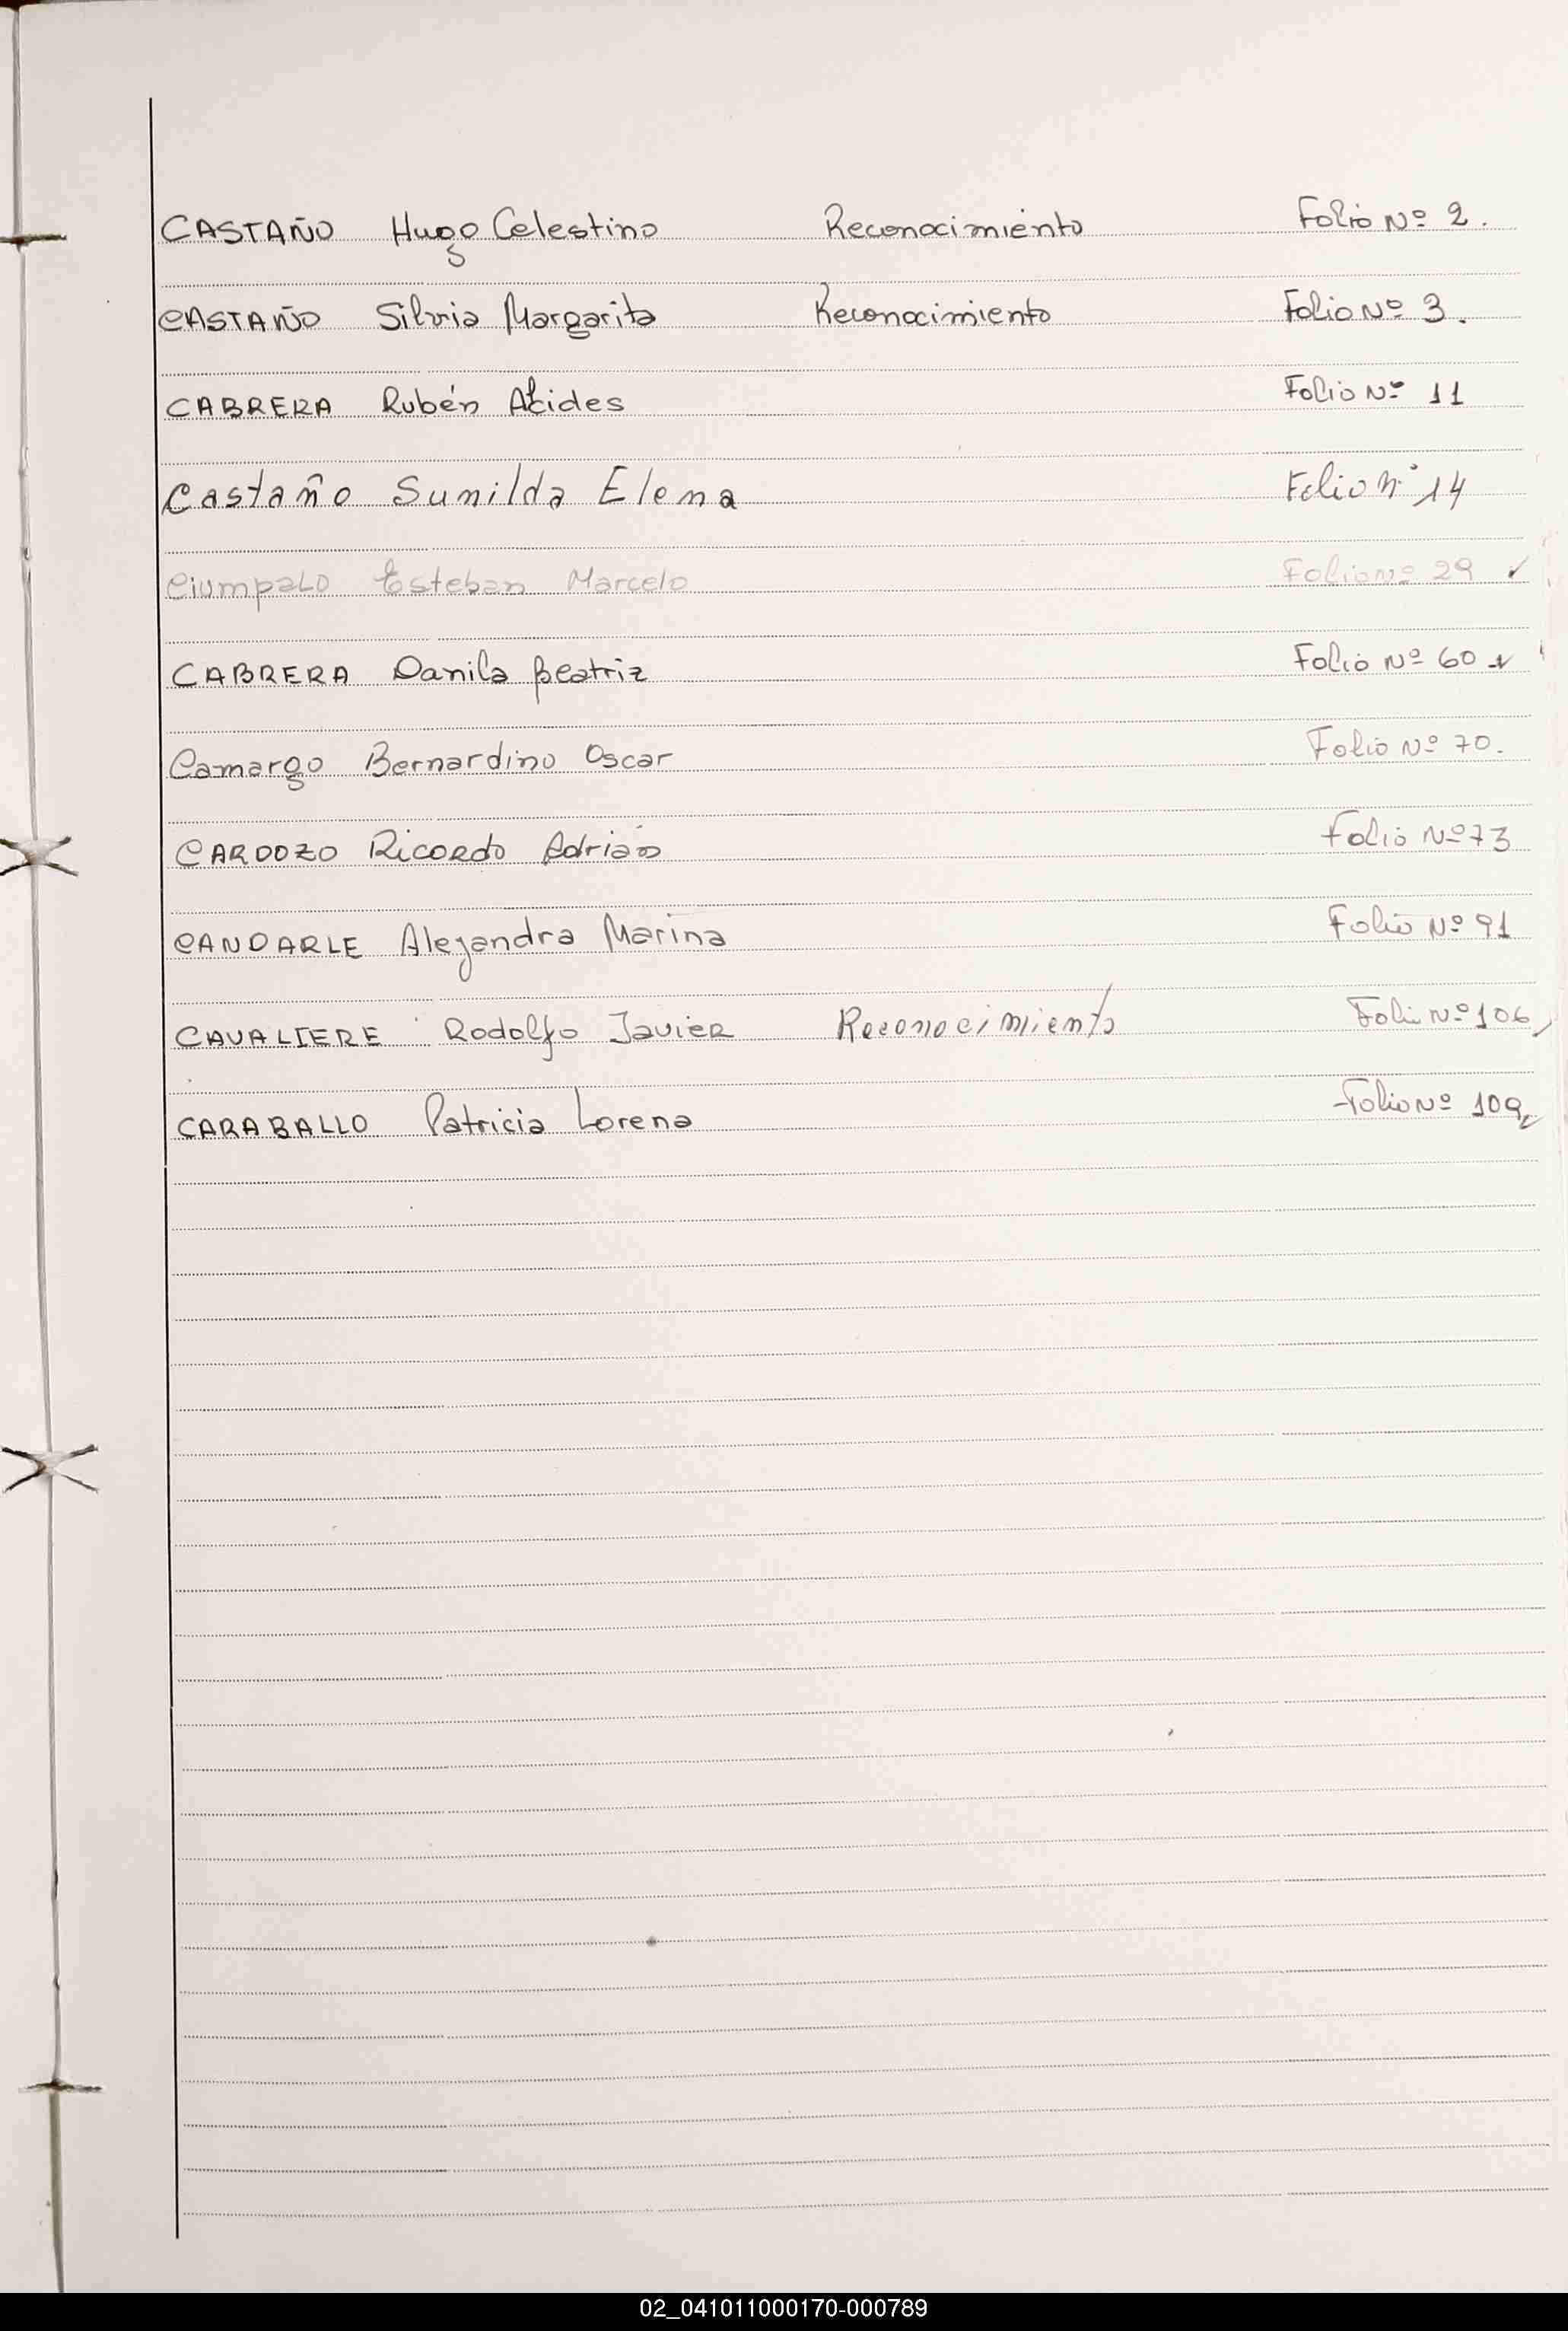 CASTAÑO Hugo Celestino Reconocimiento Folio Nº 2.
CASTAÑO Silvia Margarita Reconocimiento Folio Nº 3.
CABRERA Rubén Alcides Folio Nº 11
Castaño Sunilda Elena Folio Nº 14
Ciumpalo Esteban Marcelo Folio Nº 29 ✓
CABRERA Danila Beatriz Folio Nº 60
Camargo Bernardino Oscar Folio Nº 70.
CARDOZO Ricardo Adrián Folio Nº 73
CANDARLE Alejandra Marina Folio Nº 91
CAVALIERE Rodolfo Javier Reconocimiento Folio Nº 106
CARABALLO Patricia Lorena Folio Nº 109
02_041011000170-000789